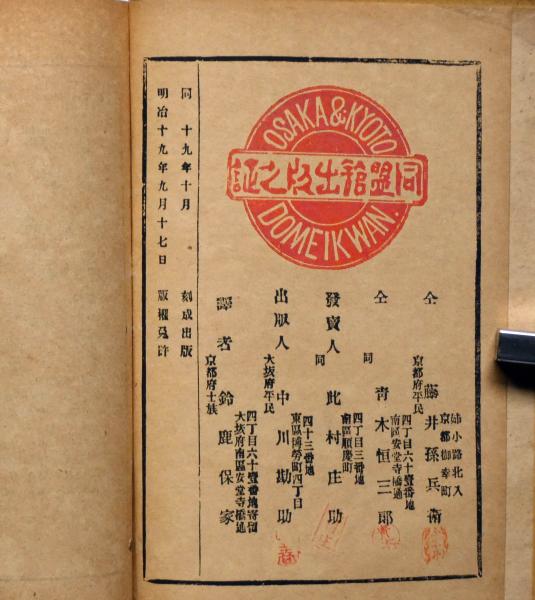 明治十九年九月十七日 版權免許
同 十九年十月 刻成出版
OSAKA & KYOTO
同盟館出版之証
DOMEIKWAN.
京都府士族
譯者 鈴鹿保家
大坂府南區安堂寺橋通
四丁目六十壹番地寄留
大坂府平民
出版人 中川勘助
東區博勞町四丁目
四十三番地
同
發賣人 此村庄助
南區順慶町
四丁目三番地
同
仝 青木恒三郎
南區安堂寺橋通
四丁目六十壹番地
京都府平民
仝 藤井孫兵衛
京都御幸町
姉小路北入